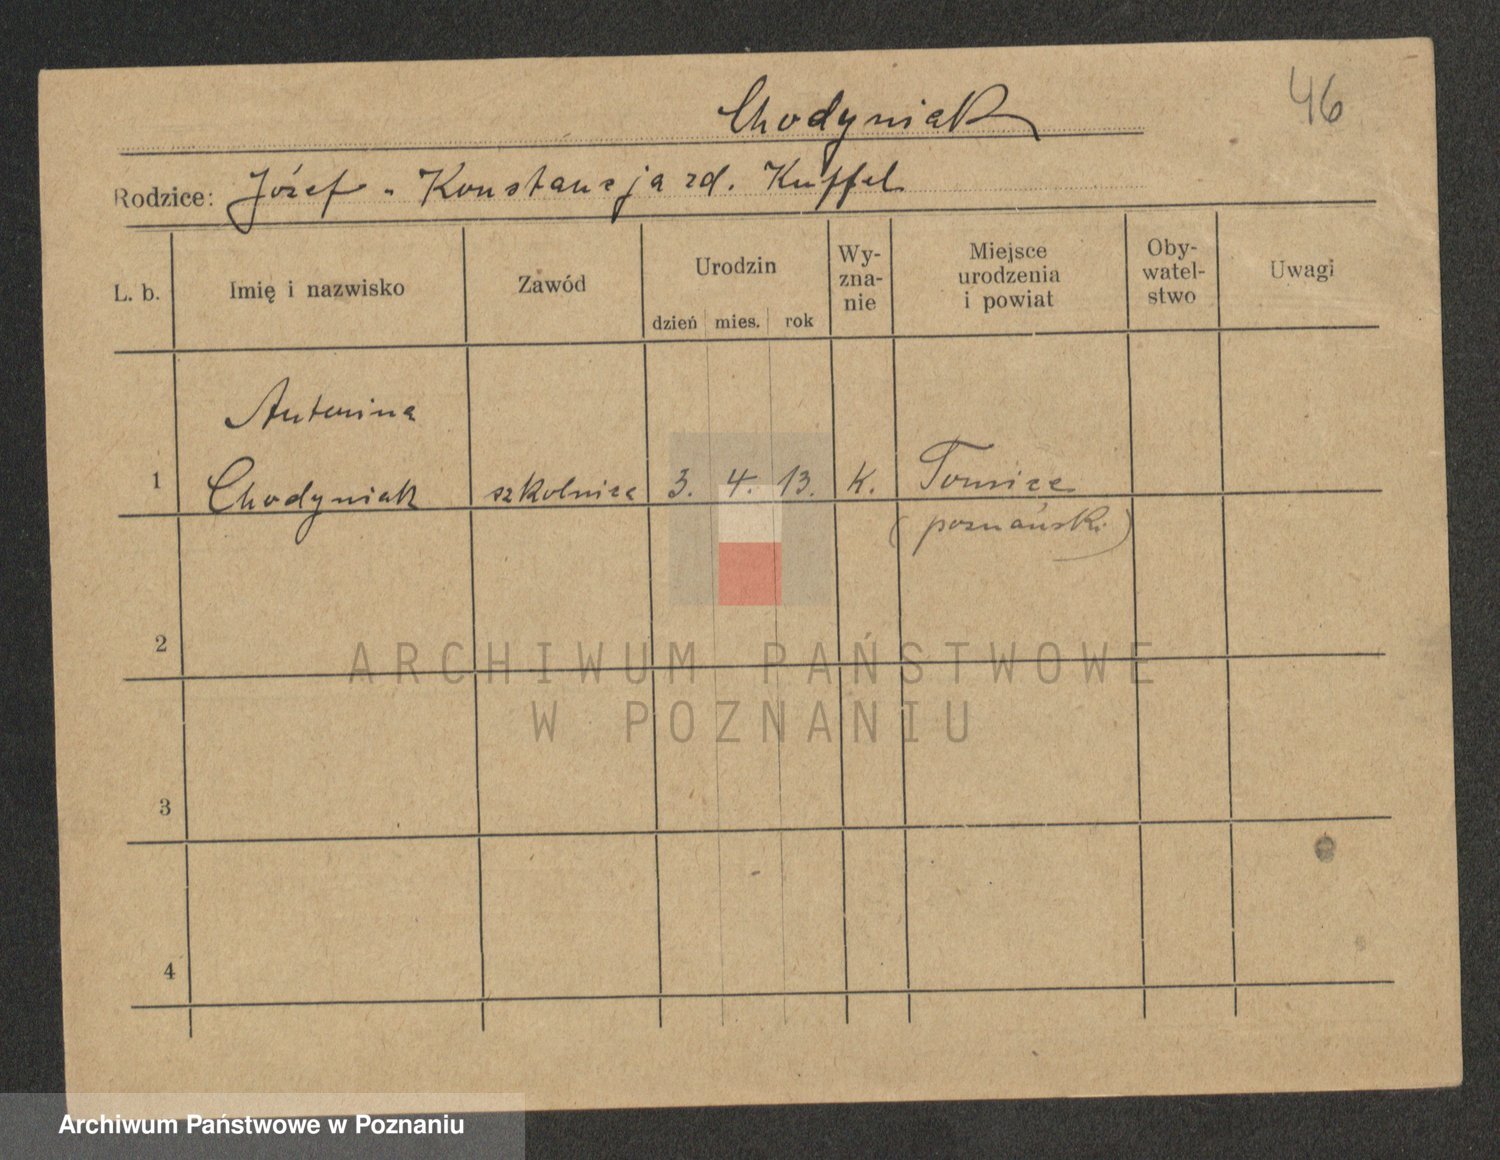 Chodyniak
46
Rodzice: Józef - Konstancja zd. Kuffel
L. b.
Imię i nazwisko
Zawód
Urodzin
dzień mies. rok
Wy-
zna-
nie
Miejsce
urodzenia
i powiat
Oby-
watel-
stwo
Uwagi
Antonina
1 Chodyniak szkolnica 3. 4. 13. k. Tomice
(poznański)
2
3
4
ARCHIWUM PAŃSTWOWE
W POZNANIU
Archiwum Państwowe w Poznaniu